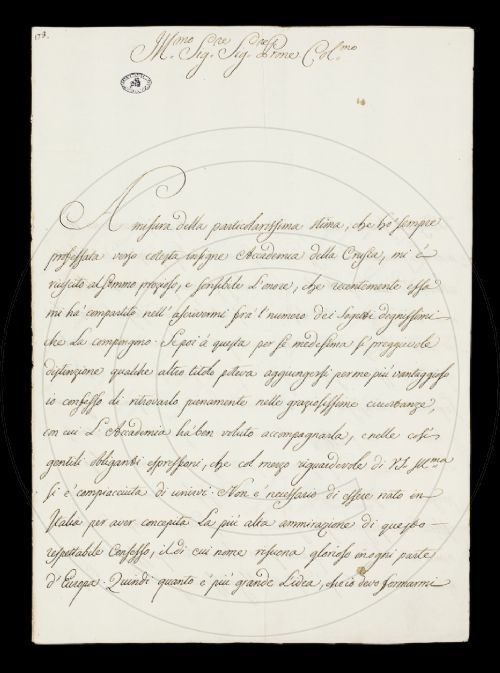 173.
Ill.mo Sig.re Sig.re Prone Col.mo
A misura della particolarissima stima, che hò sempre
professata verso cotesta insigne Accademia della Crusca, mi è
riuscito al sommo prezioso, e sensibile l'onore, che recentemente essa
mi ha compartito nell'ascrivermi frà 'l numero dei Sogetti degnissimi
che la compongono. Se poi à questa per se medesima si preggievole
distinzione qualche altro titolo poteva aggiungersi per me più vantaggioso
io confesso di ritrovarlo pienamente nelle graziosissime circostanze,
con cui l'Accademia hà ben voluto accompagnarla, e nelle così
gentili obliganti espressioni, che col mezzo riguardevole di V.S. Ill.ma
si è compiacciuta di unirvi. Non è necessario di essere nato in
Italia per aver concepita la più alta ammirazione di questo
rispettabile Consesso, il di cui nome risuona glorioso in ogni parte
d'Europa. Quindi quanto è più grande l'idea, che io devo formarmi